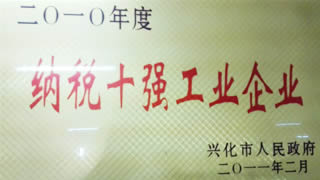 二〇一〇年度
纳税十强工业企业
兴化市人民政府
二〇一一年二月